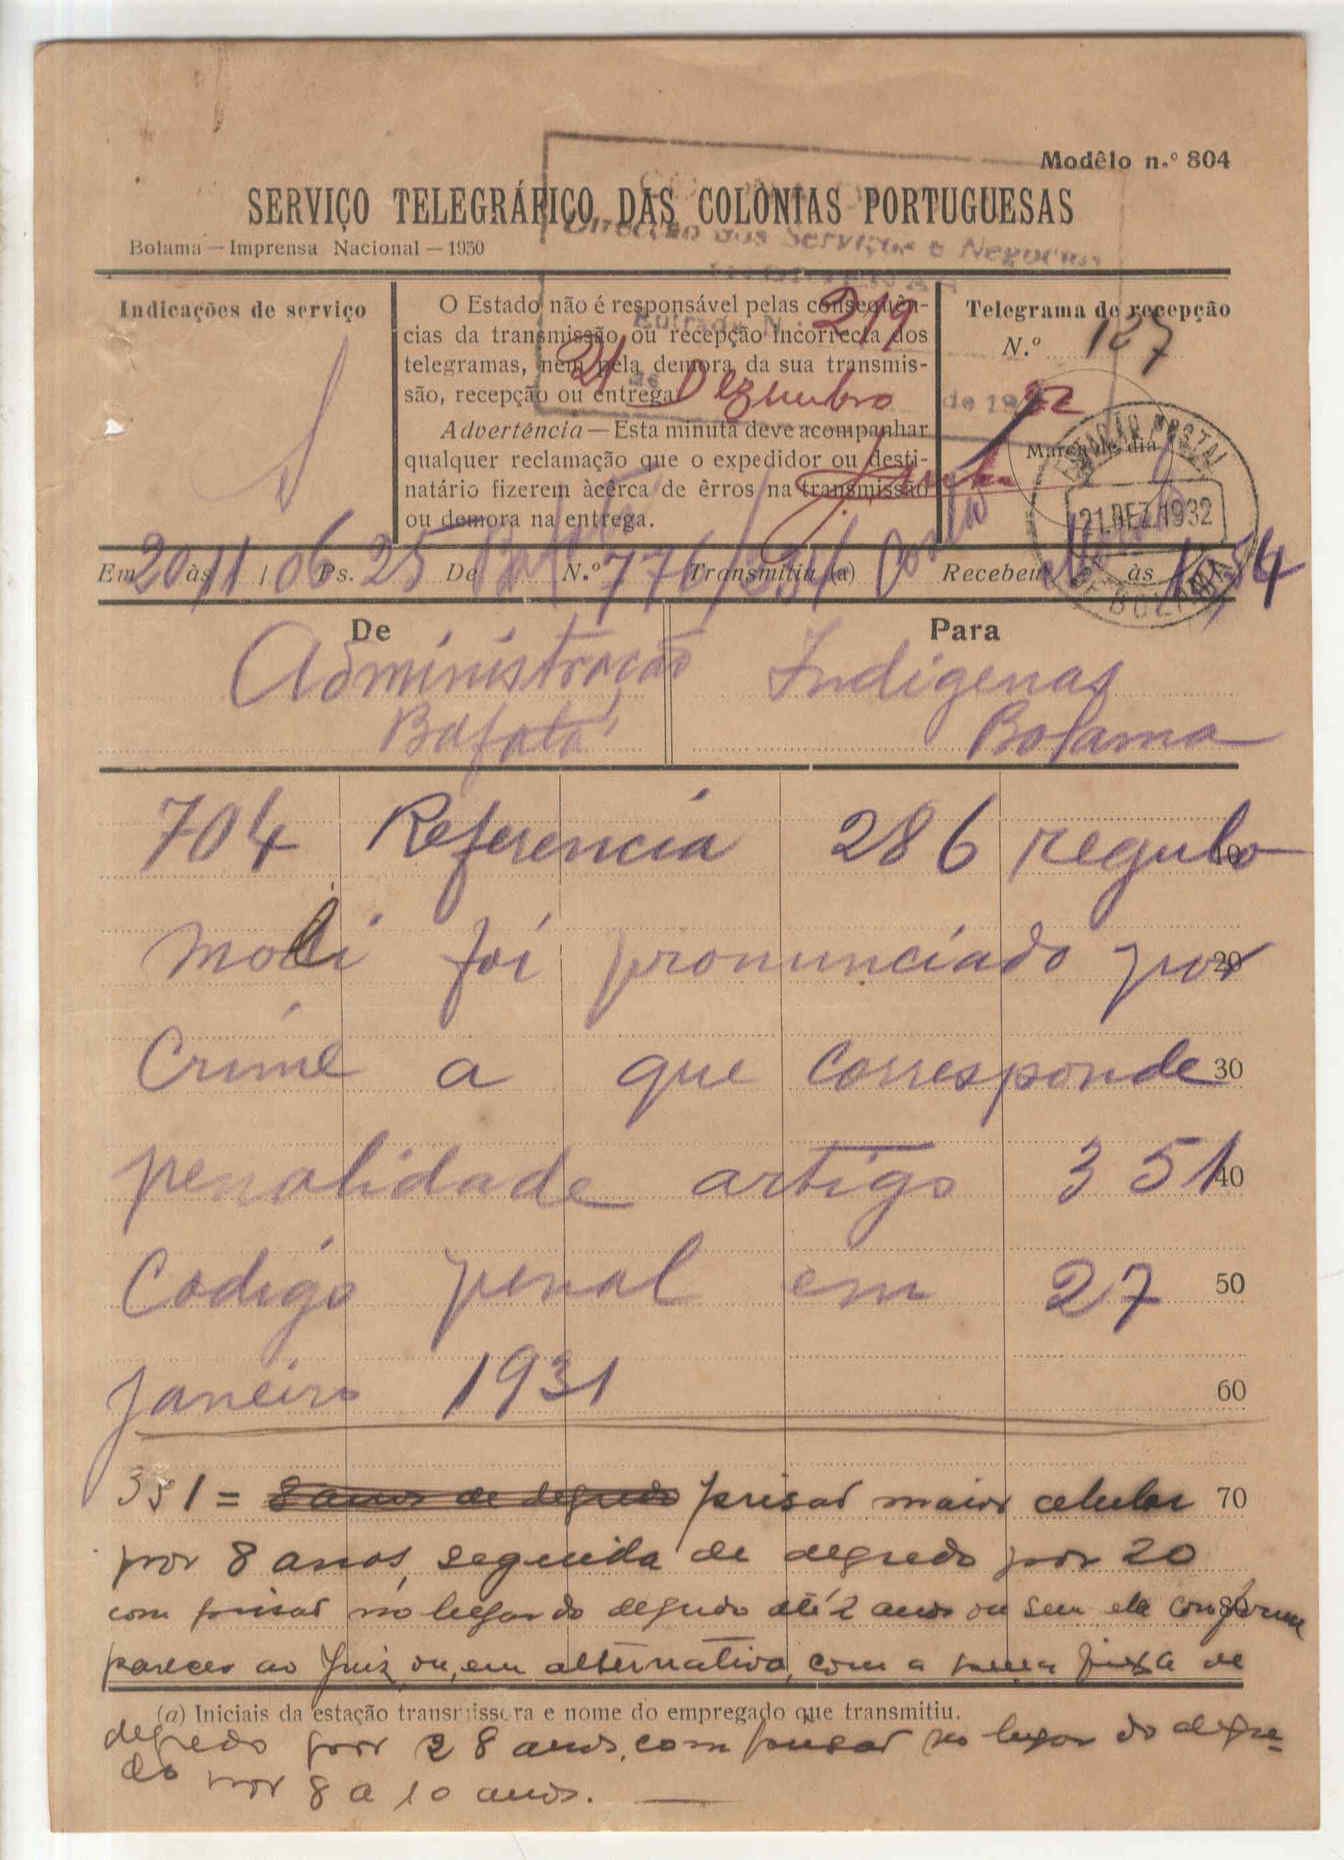 Modêlo n.º 804
SERVIÇO TELEGRÁFICO DAS COLÓNIAS PORTUGUESAS
Bolama — Imprensa Nacional — 1930
Direcção dos Serviços e Negocios
Indicações de serviço
O Estado não é responsável pelas consequên-
cias da transmissão ou recepção incorrecta dos
telegramas, nem pela demora da sua transmis-
são, recepção ou entrega.
Advertência — Esta minuta deve acompanhar
qualquer reclamação que o expedidor ou desti-
natário fizerem àcerca de êrros na transmissão
ou demora na entrega.
Entrada N.º 219
21 de Dezembro de 1932
Telegrama de recepção
N.º 127
Marca de dia
ESTAÇÃO POSTAL
21.DEZ.1932
DE BOLAMA
Em 20 às 11/06 Ps. 25 De N.º 776/ Transmitiu (a) Recebeu às
De
Administração
Bafatá
Para
Indigenas
Bolama
704 Referencia 286 regulo 10
Moli foi pronunciado por 20
Crime a que corresponde 30
penalidade artigo 351 40
Codigo penal em 27 50
Janeiro 1931 60
351 = 8 anos de degredo prisaõ maior celular 70
por 8 anos, seguida de degredo por 20
com prisaõ no lugar do degredo até 2 anos ou sem ela conforme 80
parecer ao Juiz ou, em alternativa, com a pena fixa de
(a) Iniciais da estação transmissora e nome do empregado que transmitiu.
degredo por 28 anos, com prisaõ no lugar do degre-
do por 8 a 10 anos.